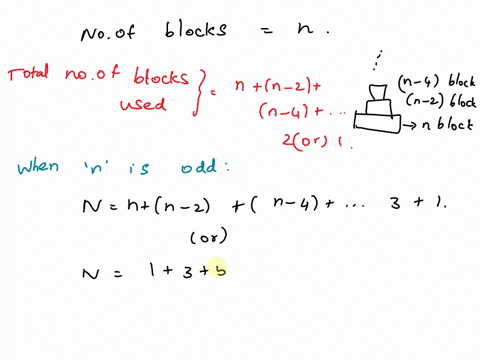 No. of blocks = n.
Total no. of blocks used } = n + (n-2) +
(n-4) + ...
2 (or) 1.
(n-4) block
(n-2) block
→ n block
When 'n' is odd:
N = n + (n-2) + (n-4) + ... 3 + 1.
(or)
N = 1 + 3 + 5